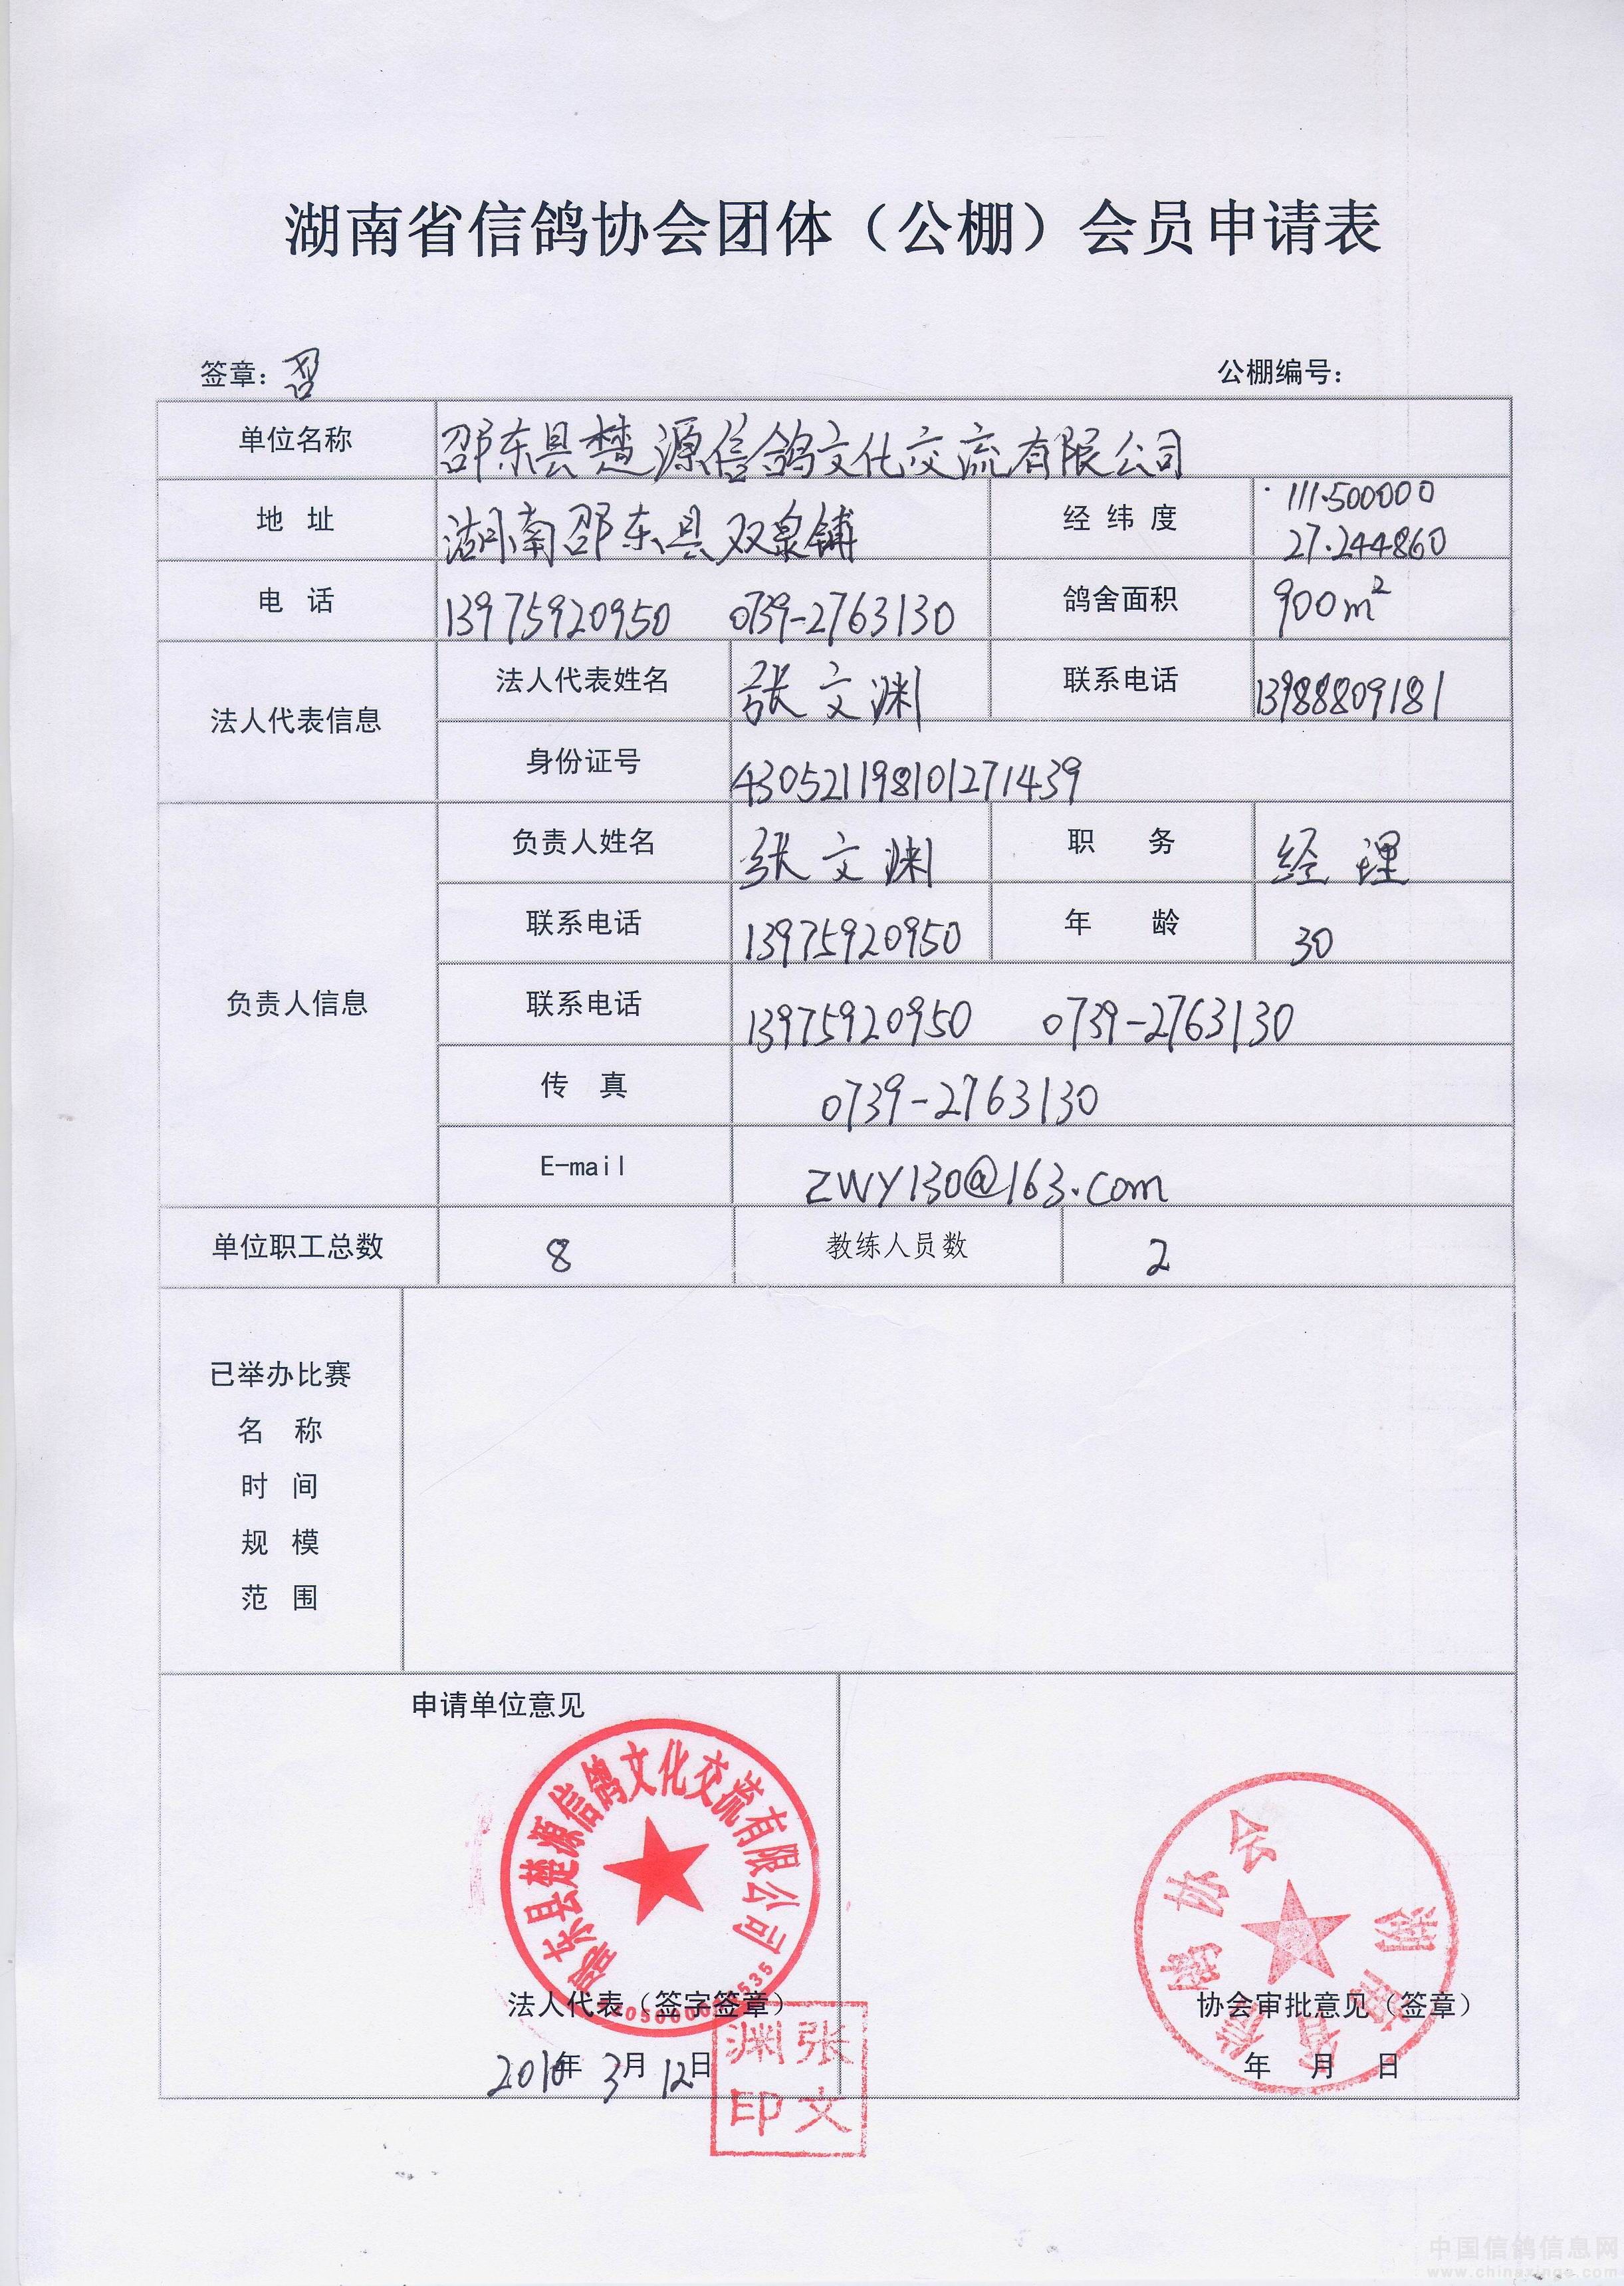 湖南省信鸽协会团体（公棚）会员申请表
签章：
公棚编号：
单位名称 邵东县楚源信鸽文化交流有限公司
地 址 湖南邵东县双泉铺 经 纬 度 111.500000
27.244860
电 话 13975920950 0739-2763130 鸽舍面积 900m²
法人代表信息 法人代表姓名 张文渊 联系电话 13988809181
身份证号 430521198101271439
负责人信息 负责人姓名 张文渊 职 务 经理
联系电话 13975920950 年 龄 30
联系电话 13975920950 0739-2763130
传 真 0739-2763130
E-mail ZWY130@163.com
单位职工总数 8 教练人员数 2
已举办比赛
名 称
时 间
规 模
范 围
申请单位意见
邵东县楚源信鸽文化交流有限公司
法人代表（签字签章）
2010年 3月 12日
张文渊印
湖南省信鸽协会
协会审批意见（签章）
年 月 日
中国信鸽信息网
www.chinaxinge.com